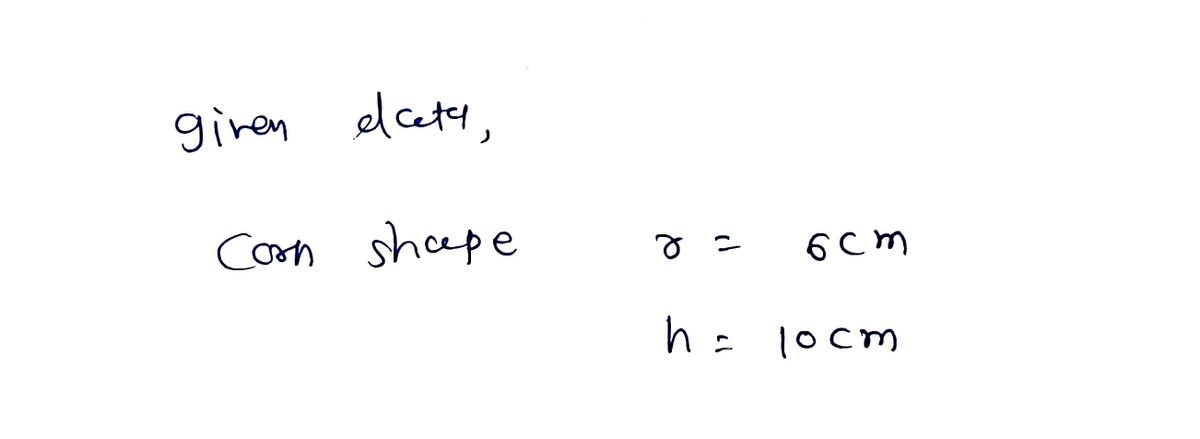 given data,
Corn shape r = 6cm
h = 10cm